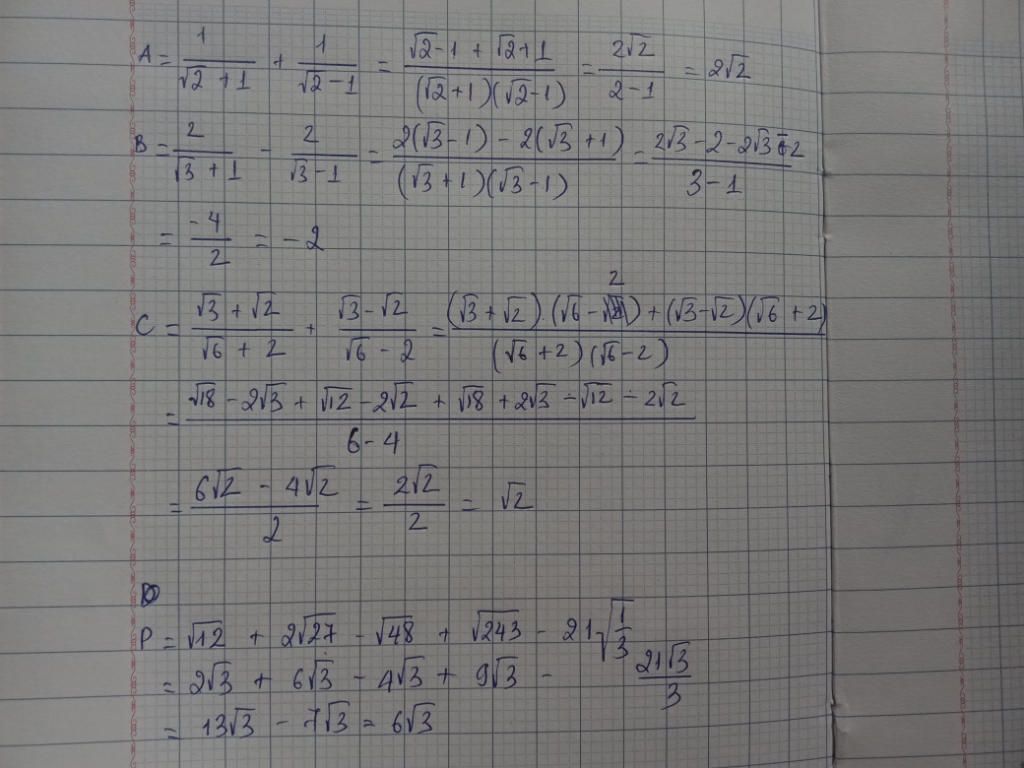 A = 1/(√2 + 1) + 1/(√2 - 1) = (√2 - 1 + √2 + 1)/((√2 + 1)(√2 - 1)) = 2√2/(2 - 1) = 2√2
B = 2/(√3 + 1) - 2/(√3 - 1) = (2(√3 - 1) - 2(√3 + 1))/((√3 + 1)(√3 - 1)) = (2√3 - 2 - 2√3 - 2)/(3 - 1)
= -4/2 = -2
C = (√3 + √2)/(√6 + 2) + (√3 - √2)/(√6 - 2) = ((√3 + √2).(√6 - 2) + (√3 - √2)(√6 + 2))/((√6 + 2)(√6 - 2))
= (√18 - 2√3 + √12 - 2√2 + √18 + 2√3 - √12 - 2√2)/(6 - 4)
= (6√2 - 4√2)/2 = 2√2/2 = √2
P = √12 + 2√27 - √48 + √243 - 21√(1/3)
= 2√3 + 6√3 - 4√3 + 9√3 - 21√3/3
= 13√3 - 7√3 = 6√3